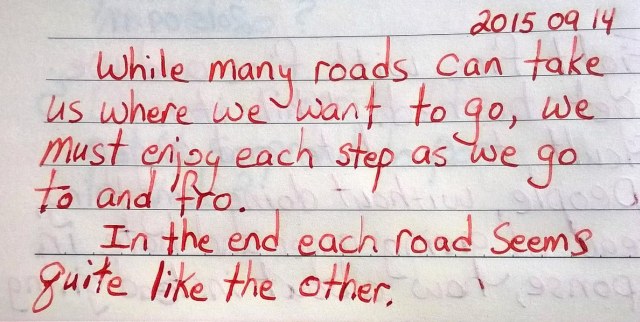 2015 09 14
While many roads can take
us where we want to go, we
must enjoy each step as we go
to and fro.
In the end each road seems
quite like the other.